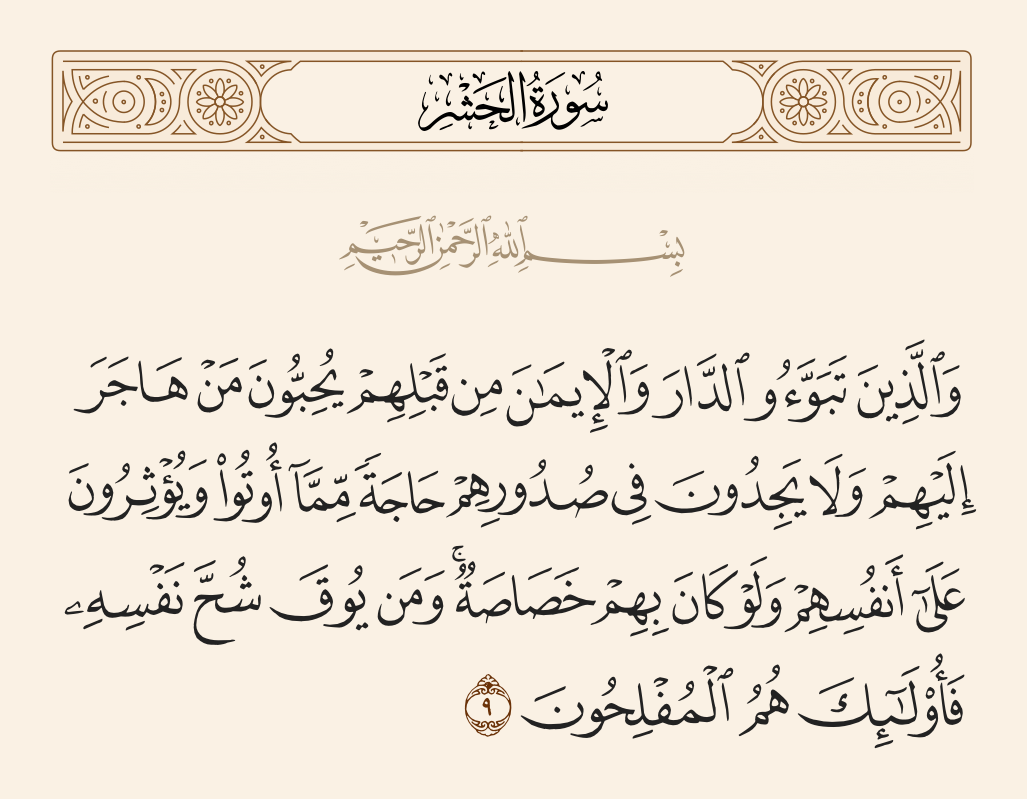 سُورَةُ الحَشْرِ
بِسْمِ ٱللَّهِ ٱلرَّحْمَٰنِ ٱلرَّحِيمِ
وَٱلَّذِينَ تَبَوَّءُو ٱلدَّارَ وَٱلْإِيمَٰنَ مِن قَبْلِهِمْ يُحِبُّونَ مَنْ هَاجَرَ
إِلَيْهِمْ وَلَا يَجِدُونَ فِى صُدُورِهِمْ حَاجَةً مِّمَّآ أُوتُوا۟ وَيُؤْثِرُونَ
عَلَىٰٓ أَنفُسِهِمْ وَلَوْ كَانَ بِهِمْ خَصَاصَةٌ ۚ وَمَن يُوقَ شُحَّ نَفْسِهِۦ
فَأُو۟لَـٰٓئِكَ هُمُ ٱلْمُفْلِحُونَ ٩